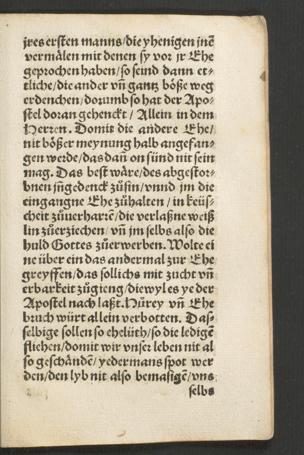 jres ersten manns/die yhenigen jnē
vermålen mit denen sy vor jr Ehe
geprochen haben/so seind dann et⸗
tliche/die ander vñ gantz bőße weg
erdencken/dorumb so hat der Apo⸗
stel doran gehenckt/Allein in dem
Herren. Domit die andere Ehe/
nit bőßer meynung halb angefan⸗
gen werde/das dañ on sünd nit sein
mag. Das best wåre/des abgestor⸗
bnen jngedenck zůsin/vnnd jm die
eingangne Ehe zůhalten/in keüs⸗
cheit zůuerharrē/die verlaßne weiß
lin zůerziechen/vñ jm selbs also die
huld Gottes zůerwerben. Wolte ei
ne über ein das andermal zur Ehe
greyffen/das sollichs mit zucht vñ
erbarkeit zůgieng/diewyl es yeder
Apostel nach laßt. Hůrey vñ Ehe
bruch würt allein verbotten. Das⸗
selbige sollen so ehelüth/so die ledigē
fliehen/domit wir vnser leben nit al
so geschåndē/yedermans spot wer
den/den lyb nit also bemasigē/vns
selbs